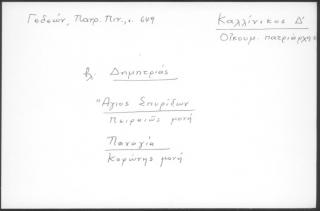 Γεδεών, Πατρ. Πιν., σ. 649
Καλλίνικος Δ'
Οἰκουμ. πατριάρχης
βλ Δημητριάς
Ἅγιος Σπυρίδων
Πειραιῶς μονή
Παναγία
Κορώνης μονή